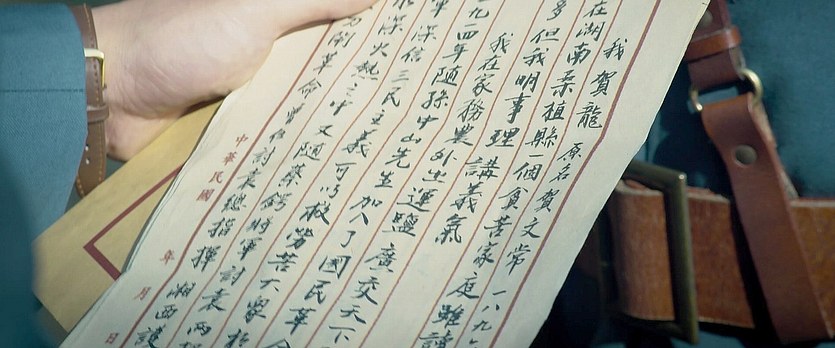 我賀龍 原名賀文常 一八九
在湖南桑植縣一個貧苦家庭 雖讀
多 但我明事理 講義氣
我在家務農 外出運鹽 廣交天下
九一四年隨孫中山先生加入了國民革
軍深信三民主義 可以救勞苦大眾於
水深火熱之中 又隨蔡鍔將軍討袁 兩
倒革命 曾任討袁總指揮 湘西護
中華民國 年 月 日